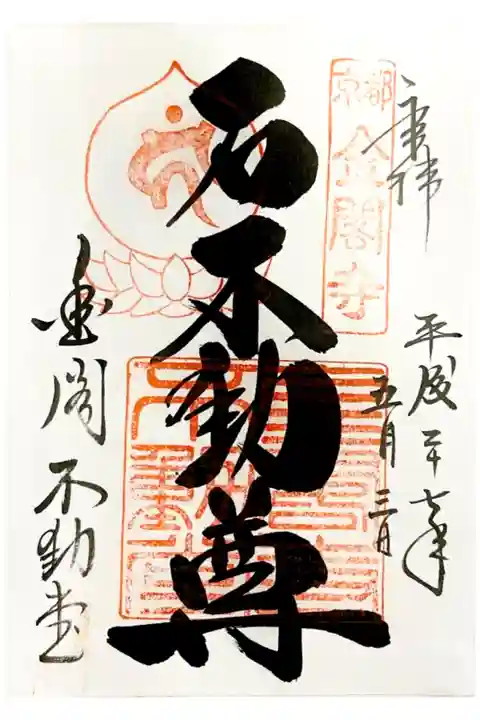 奉拝
京都
金閣寺
平成二十七年
五月三日
石不動尊
金閣不動堂